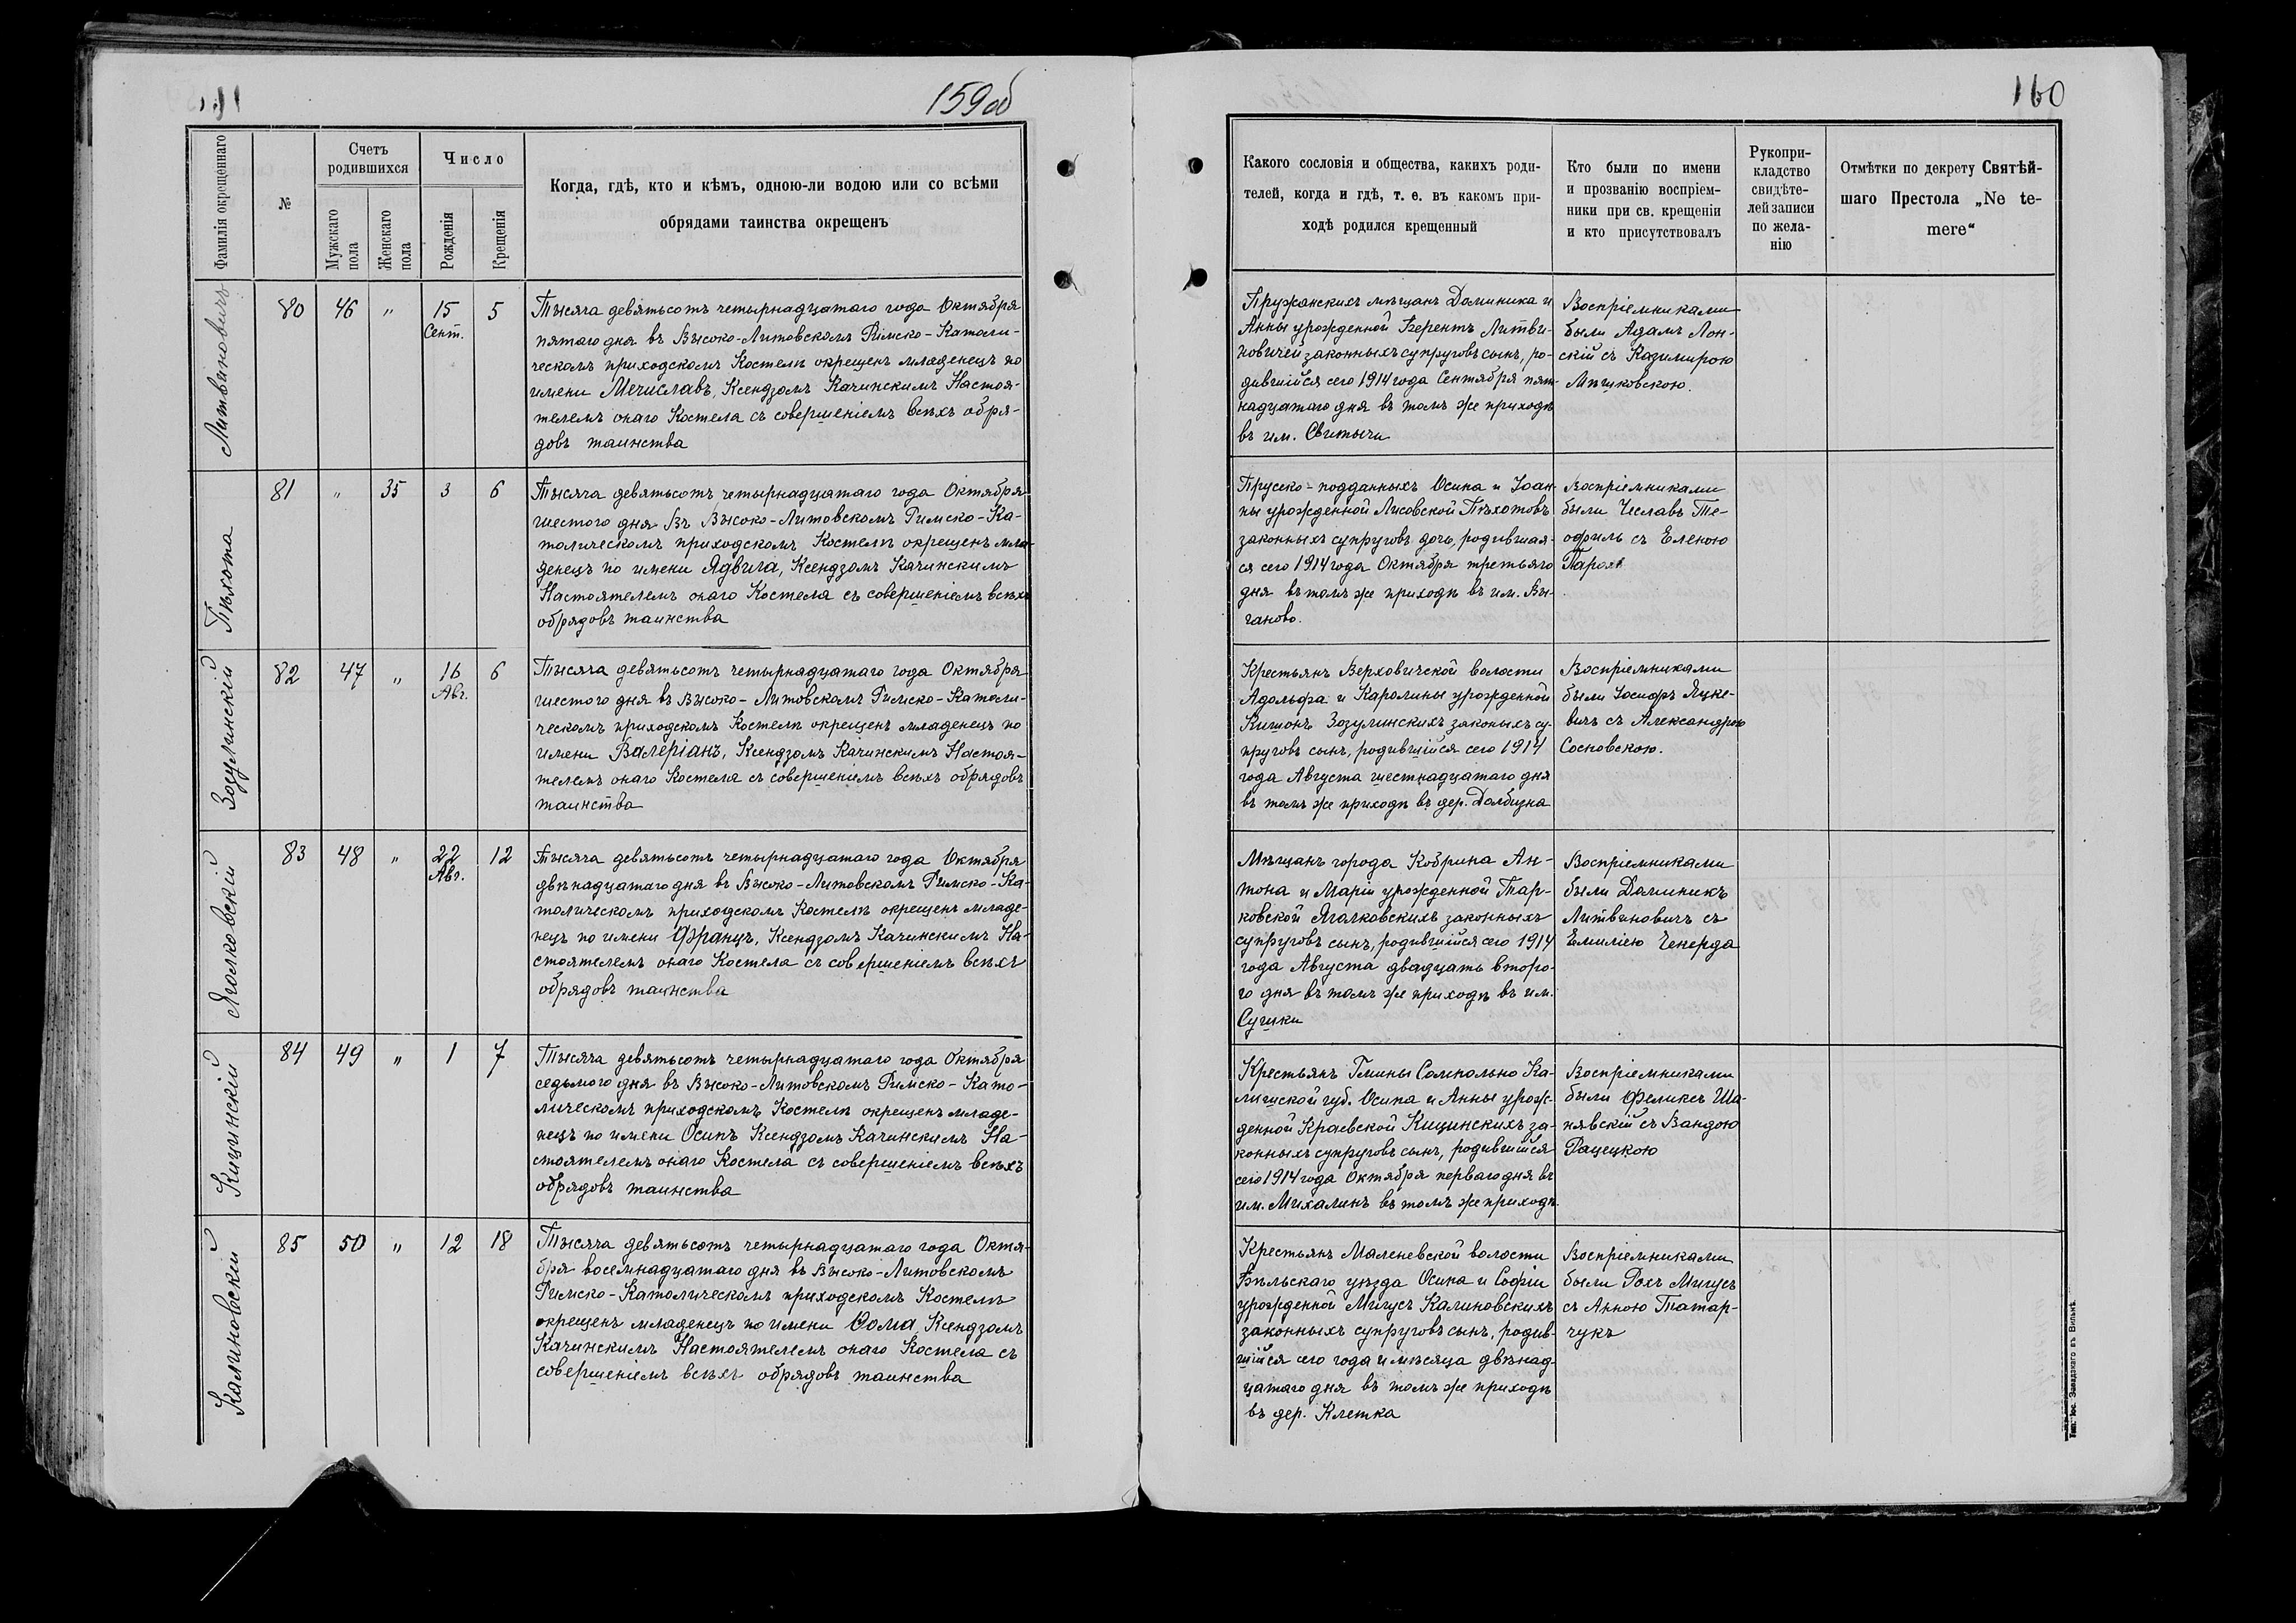 159об
Фамилія окрещеннаго
№
Счетъ
родившихся
Мужскаго
пола
Женскаго
пола
Число
Рожденія
Крещенія
Когда, гдѣ, кто и кѣмъ, одною-ли водою или со всѣми
обрядами таинства окрещенъ
Литвиновичъ
80
46
"
15
Сент.
5
Тысяча девятьсотъ четырнадцатаго года Октября
пятаго дня въ Высоко-Литовскомъ Римско-Католи-
ческомъ приходскомъ Костелѣ окрещенъ младенецъ по
имени Мечиславъ, Ксендзомъ Качинскимъ Настоя-
телемъ онаго Костела съ совершеніемъ всѣхъ обря-
довъ таинства
Пѣхота
81
"
35
3
6
Тысяча девятьсотъ четырнадцатаго года Октября
шестого дня въ Высоко-Литовскомъ Римско-Ка-
толическомъ приходскомъ Костелѣ окрещенъ мла-
денецъ по имени Ядвига, Ксендзомъ Качинскимъ
Настоятелемъ онаго Костела съ совершеніемъ всѣхъ
обрядовъ таинства
Зозулинскій
82
47
"
16
Авг.
6
Тысяча девятьсотъ четырнадцатаго года Октября
шестого дня въ Высоко-Литовскомъ Римско-Католи-
ческомъ приходскомъ Костелѣ окрещенъ младенецъ по
имени Валеріанъ, Ксендзомъ Качинскимъ Настоя-
телемъ онаго Костела съ совершеніемъ всѣхъ обрядовъ
таинства
Ягалковскій
83
48
"
22
Авг.
12
Тысяча девятьсотъ четырнадцатаго года Октября
двѣнадцатаго дня въ Высоко-Литовскомъ Римско-Ка-
толическомъ приходскомъ Костелѣ окрещенъ младе-
нецъ по имени Францъ, Ксендзомъ Качинскимъ На-
стоятелемъ онаго Костела съ совершеніемъ всѣхъ
обрядовъ таинства
Кицинскій
84
49
"
1
7
Тысяча девятьсотъ четырнадцатаго года Октября
седьмого дня въ Высоко-Литовскомъ Римско-Като-
лическомъ приходскомъ Костелѣ окрещенъ младе-
нецъ по имени Осипъ Ксендзомъ Качинскимъ На-
стоятелемъ онаго Костела съ совершеніемъ всѣхъ
обрядовъ таинства
Калиновскій
85
50
"
12
18
Тысяча девятьсотъ четырнадцатаго года Октя-
бря восемнадцатаго дня въ Высоко-Литовскомъ
Римско-Католическомъ приходскомъ Костелѣ
окрещенъ младенецъ по имени Ѳома Ксендзомъ
Качинскимъ Настоятелемъ онаго Костела съ
совершеніемъ всѣхъ обрядовъ таинства
160
Какого сословія и общества, какихъ роди-
телей, когда и гдѣ, т. е. въ какомъ при-
ходѣ родился крещенный
Кто были по имени
и прозванію воспріем-
ники при св. крещеніи
и кто присутствовалъ
Рукопри-
кладство
свидѣте-
лей записи
по жела-
нію
Отмѣтки по декрету Святѣй-
шаго Престола „Ne te-
mere“
Пружанскихъ мѣщанъ Доминика и
Анны урожденной Берентъ Литви-
новичей законныхъ супруговъ сынъ, ро-
дившійся сего 1914 года Сентября пят-
надцатаго дня въ томъ же приходѣ
въ им. Свитычи
Воспріемниками
были Адамъ Лон-
скій съ Казимирою
Мѣшковскою.
Прусско-подданныхъ Осипа и Іоан-
ны урожденной Лисовской Пѣхотовъ
законныхъ супруговъ дочь, родившая-
ся сего 1914 года Октября третьяго
дня въ томъ же приходѣ въ им. Вы-
ганово.
Воспріемниками
были Чеславъ Те-
офиль съ Еленою
Крестьянъ Верховичской волости
Адольфа и Каролины урожденной
Китонъ Зозулинскихъ законныхъ су-
пруговъ сынъ, родившійся сего 1914
года Августа шестнадцатаго дня
въ томъ же приходѣ въ дер. Долбизна
Воспріемниками
были Іосифъ Яцке-
вичъ съ Александрою
Сосновскою.
Мѣщанъ города Кобрина Ан-
тона и Маріи урожденной Тар-
ковской Ягалковскихъ законныхъ
супруговъ сынъ, родившійся сего 1914
года Августа двадцать второ-
го дня въ томъ же приходѣ въ им.
Сушки
Воспріемниками
были Доминикъ
Литвиновичъ съ
Емиліею Чекерда
Крестьянъ Гмины Сомпольно Ка-
лишской губ. Осипа и Анны урож-
денной Краевской Кицинскихъ за-
конныхъ супруговъ сынъ, родившійся
сего 1914 года Октября перваго дня въ
им. Михалинъ въ томъ же приходѣ.
Воспріемниками
были Феликсъ Ша-
нявскій съ Вандою
Рацецкою
Крестьянъ Маленевской волости
Бѣльскаго уѣзда Осипа и Софіи
урожденной Мигусъ Калиновскихъ
законныхъ супруговъ сынъ, родив-
шійся сего года и мѣсяца двѣнад-
цатаго дня въ томъ же приходѣ
въ дер. Клетка
Воспріемниками
были Рохъ Мигусъ
съ Анною Татар-
чукъ
Тип. Іос. Завадзкаго въ Вильнѣ.